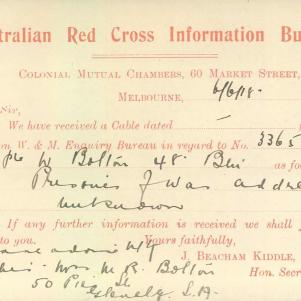 tralian Red Cross Information Bu
Colonial Mutual Chambers, 60 Market Street,
Melbourne, 6/6/18.
Sir,
We have received a Cable dated
on W. & M. Enquiry Bureau in regard to No. 3365
pte W Bolton 48 Bn as fo
Prisoner of War addre
unknown
If any further information is received we shall
Yours faithfully,
J. Beacham Kiddle,
Hon. Secre
Mrs M. R. Bolton
50 St
Glenelg S.A.